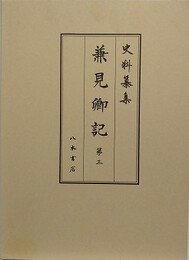 史料纂集
兼見卿記 第三
八木書店